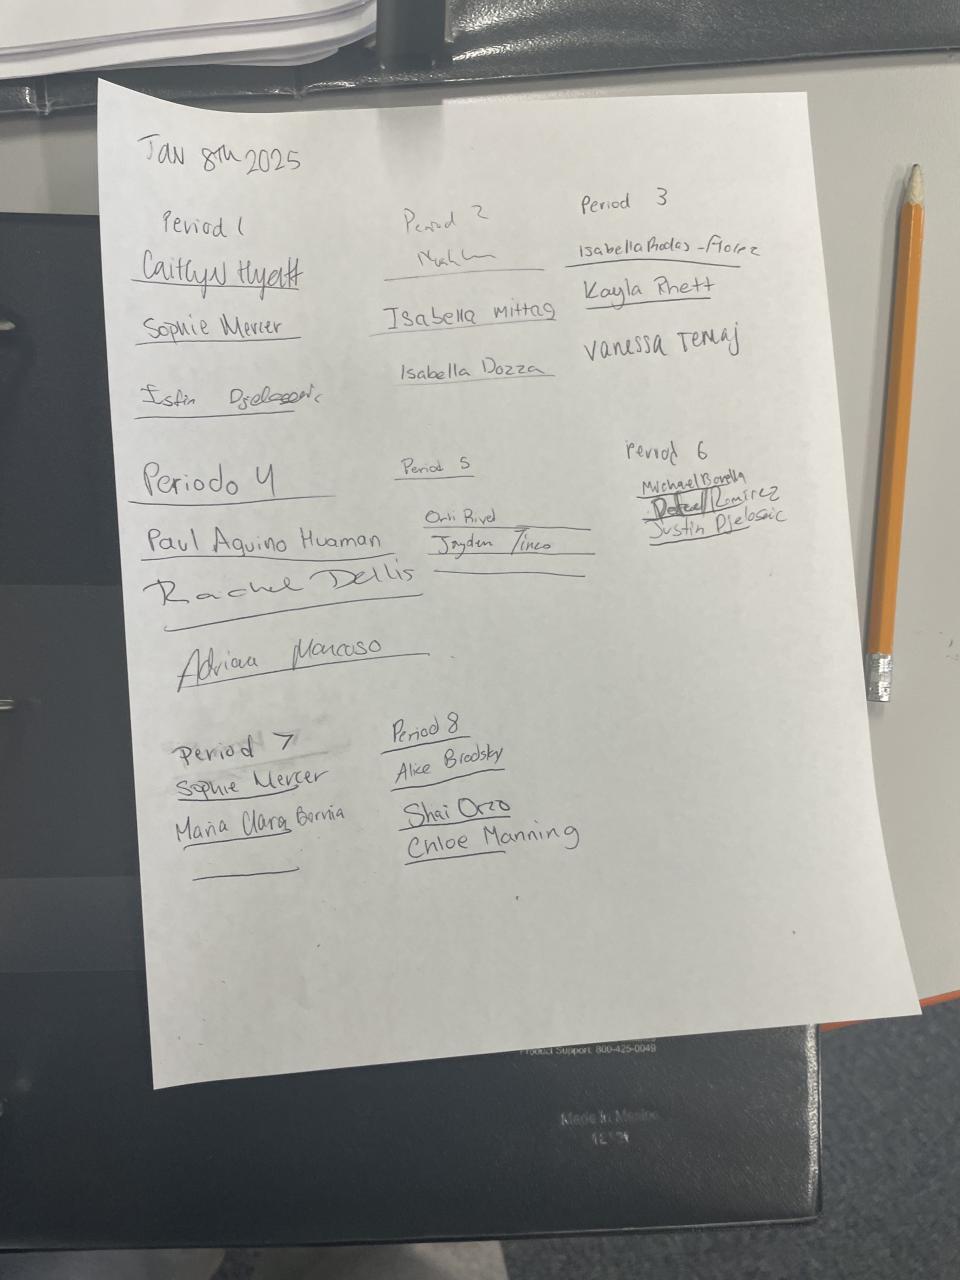 Jan 8th 2025
Period 1
Caitlyn Hyatt
Sophie Mercer
Period 2
Isabella Mittag
Isabella Dozza
Period 3
Isabella Rodas-Florez
Kayla Rhett
Vanessa Temaj
Periodo 4
Paul Aquino Huaman
Rachel Dellis
Adriana
Period 5
Jayden Tinco
Period 6
Michael Borella
Rafael Ramirez
Justin Djelosaic
Period 7
Sophie Mercer
Maria Clara
Period 8
Alice Brodsky
Shai Orzo
Chloe Manning
Product Support: 800-425-0049
Made In Mexico